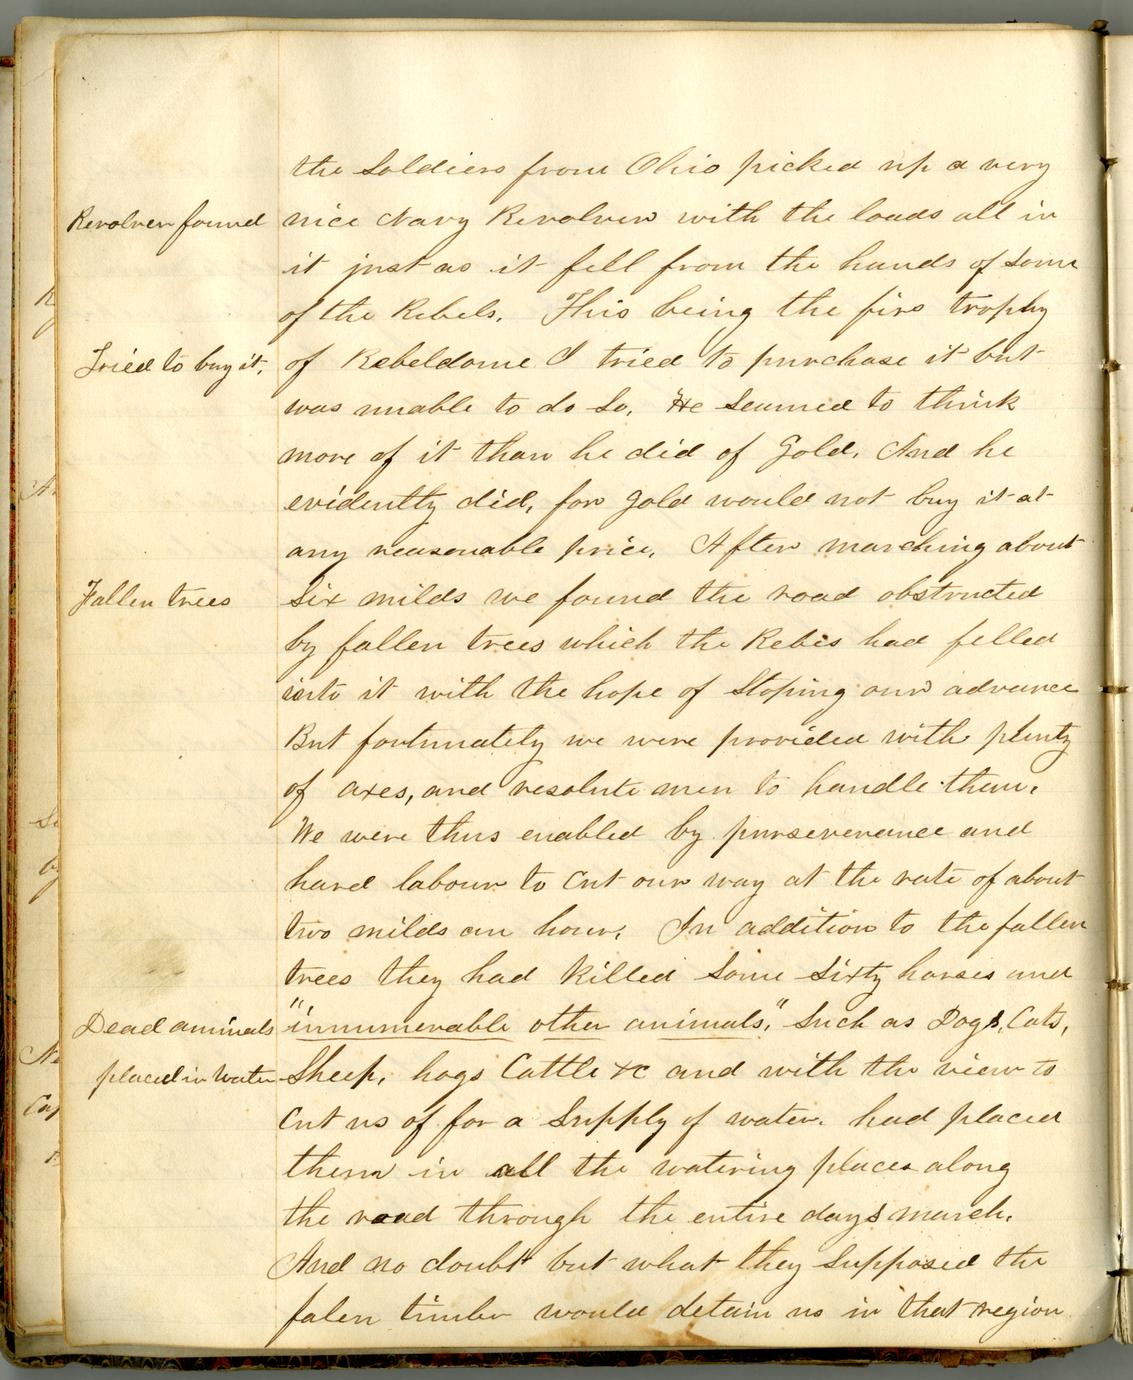 the Soldiers from Ohio picked up a very
Revolver found
nice Navy Revolver with the loads all in
it just as it fell from the hands of Some
of the Rebels. This being the firs trophy
Tried to buy it.
of Rebeldome I tried to purchase it but
was unable to do So. He Seamed to think
more of it than he did of Gold. And he
evidently did, for gold would not buy it at
any reasonable price. After marching about
Fallen trees
Six milds we found the road obstructed
by fallen trees which the Rebes had felled
into it with the hope of Stoping our advance
But fortunately we were provided with plenty
of axes, and resolute men to handle them.
We were thus enabled by purseverance and
hard labour to Cut our way at the rate of about
two milds an hour. In addition to the fallen
trees they had Killed Some Sixty horses and
Dead aminals
"innumerable other animals," Such as Dogs, Cats,
placed in water
Sheep, hogs Cattle &c and with the view to
Cut us of for a Supply of water. had placed
them in all the watering places along
the road through the entire days march.
And no doubt but what they Supposed the
falen timber would detain us in that region